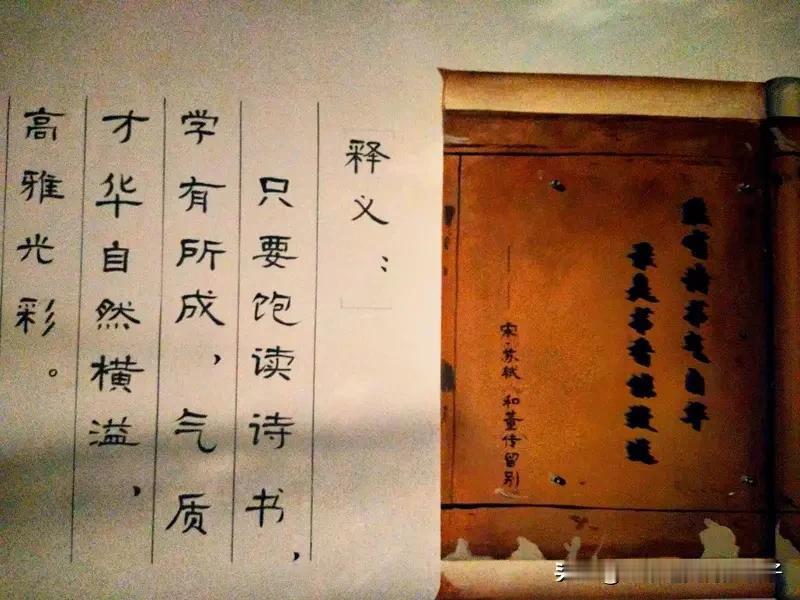 腹有诗书气自华
最是书香致远
——宋·苏轼 和董传留别
释义：
只要饱读诗书，
学有所成，气质
才华自然横溢，
高雅光彩。